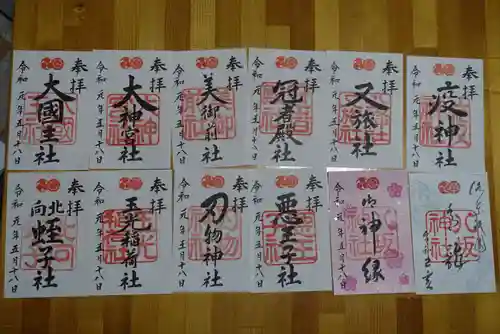 奉拝
大國主社
令和元年五月十八日
奉拝
大神宮社
令和元年五月十八日
奉拝
美御前社
令和元年五月十八日
奉拝
冠者殿社
令和元年五月十八日
奉拝
又旅社
令和元年五月十八日
奉拝
疫神社
令和元年五月十八日
奉拝
北向蛭子社
令和元年五月十八日
奉拝
玉光稲荷社
令和元年五月十八日
奉拝
刃物神社
令和元年五月十八日
奉拝
悪王子社
令和元年五月十八日
令和元年五月十八日